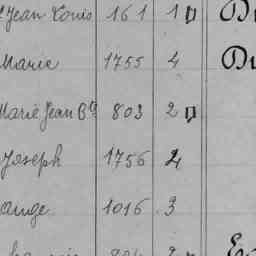 Jean Louis 161 1 D
Marie 1755 4 D
Marie Jean Bte 803 2
Joseph 1756 2
ange 1016 3